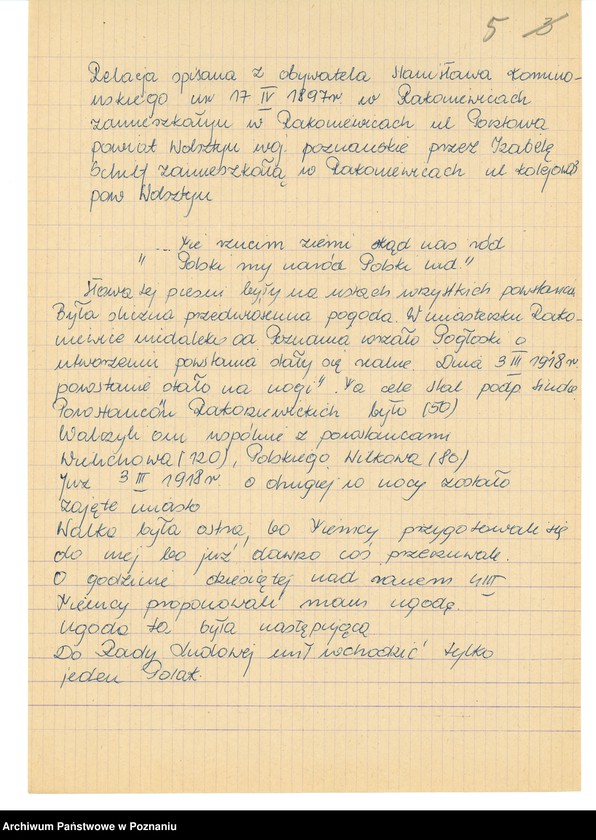 5 3
Relacja spisana z obywatela Stanisława Komino-
wskiego ur 17 IV 1897r. w Rakoniewicach
zamieszkałym w Rakoniewicach ul Pocztowa
powiat Wolsztyn woj. poznańskie przez Izabelę
zamieszkałą w Rakoniewicach ul Kolejowa
pow Wolsztyn
... Nie rzucim ziemi skąd nas ród
" Polski my naród Polski lud."
Słowa tej piesni były na ustach wszystkich powstańców
Była śliczna przedwiosenna pogoda. W miasteczku Rako-
niewice niedaleko od Poznania wrzało Pogłoski o
utworzeniu powstania stały się realne. Dnia 3 III 1918r.
powstanie stało na nogi". Na czele stał podp
Powstańców Rakoniewickich było (50)
Walczyli oni wspólnie z powstańcami
Wielichowa (120), Polskiego Wilkowa (80)
Już 3 III 1918r o drugiej w nocy zostało
zajęte miasto
Walka była ostra, bo Niemcy przygotowali się
do niej bo już dawno coś przeczuwali.
O godzinie dziesiątej nad ranem 4 III
Niemcy proponowali nam ugodę.
Ugoda ta była następująca
Do Rady Ludowej miał wchodzić tylko
jeden Polak.
Archiwum Państwowe w Poznaniu